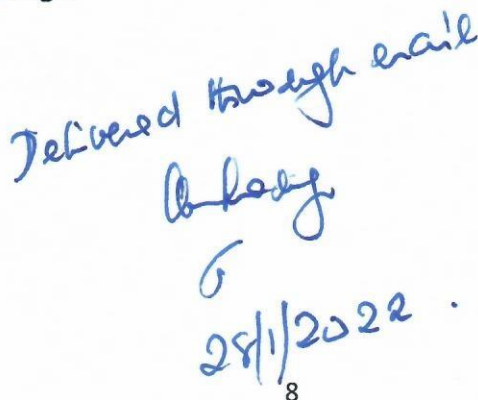 Delivered through email
28/1/2022 .
8